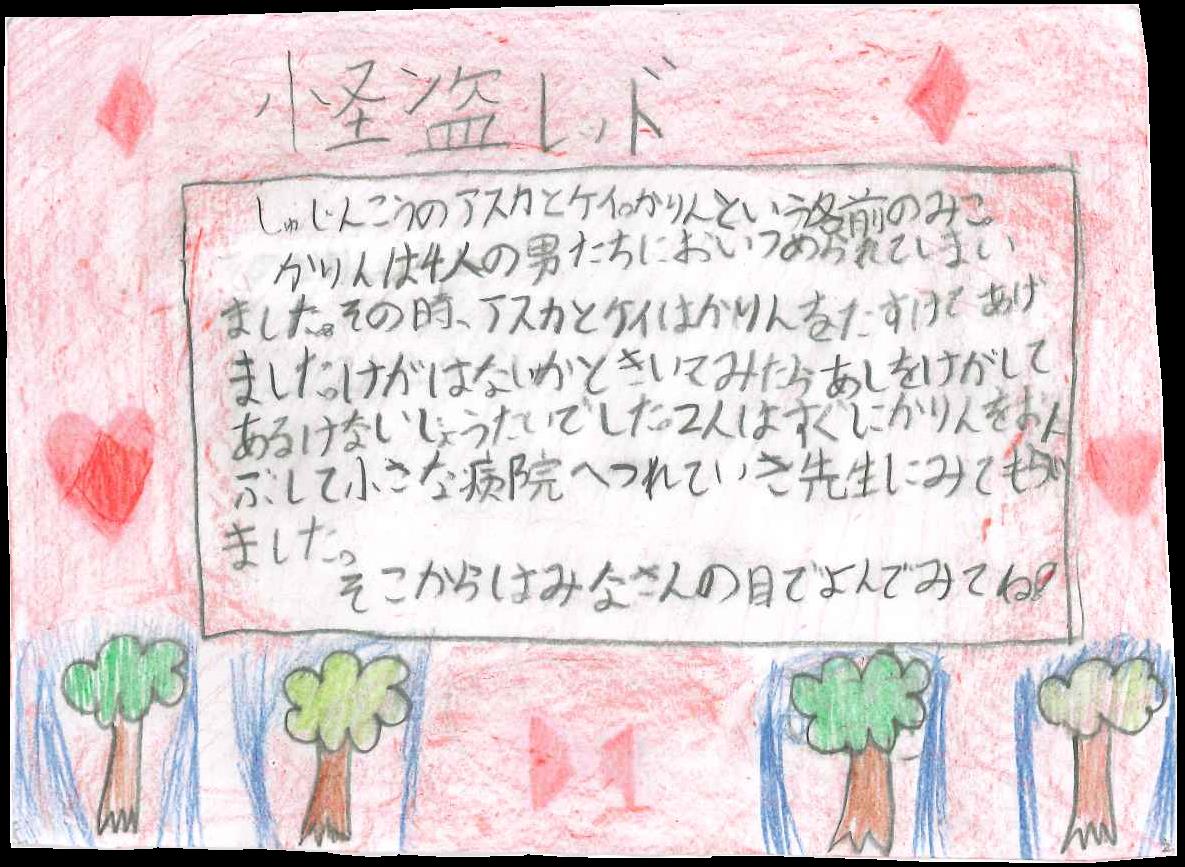 怪盗レッド
しゅじんこうのアスカとケイ。かりんという名前のみこ。
かりんは4人の男たちにおいつめられてしまい
ました。その時、アスカとケイはかりんをたすけてあげ
ました。けがはないかときいてみたらあしをけがして
あるけないじょうたいでした。2人はすぐにかりんをおん
ぶして小さな病院へつれていき先生にみてもらい
ました。
そこからはみなさんの目でよんでみてね!